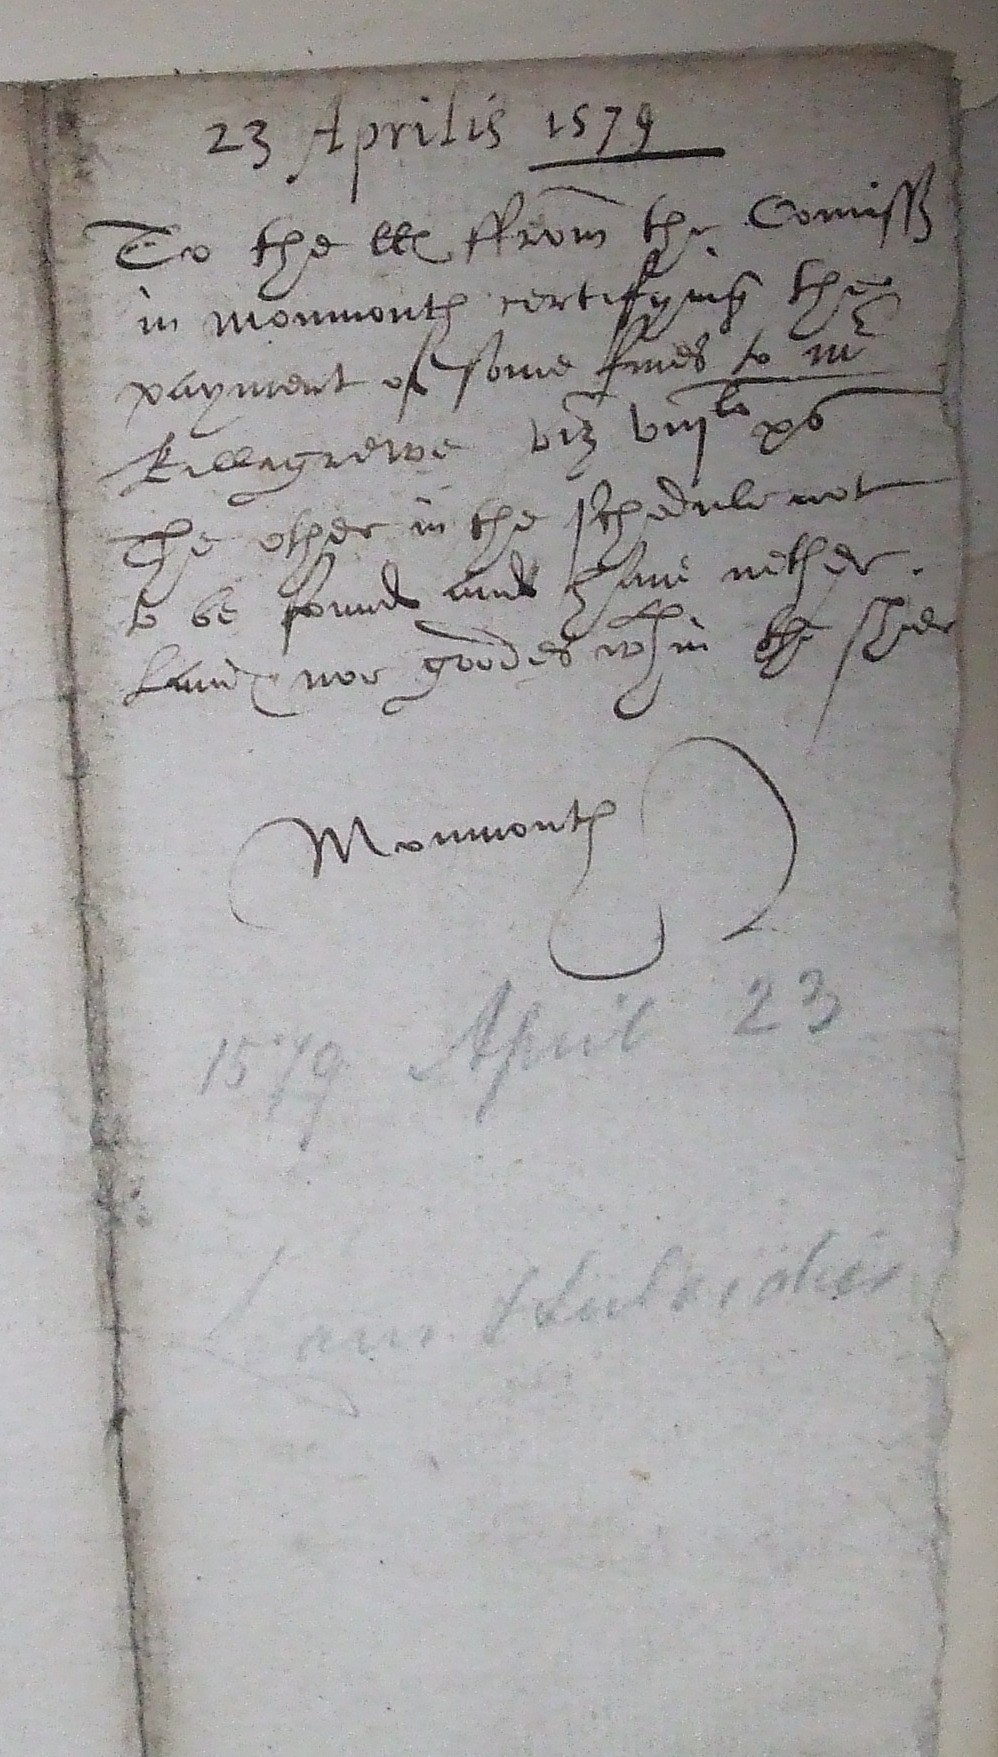 23 Aprilis 1579
To the lls ffrom the Comiss
in monmouth certifying the
payment of some fines to mr
Killegrewe viz viijlo xs
The other in the schedule not
to be found and have nether
Land nor goodes wthin the shier
Monmouth
1579 April 23